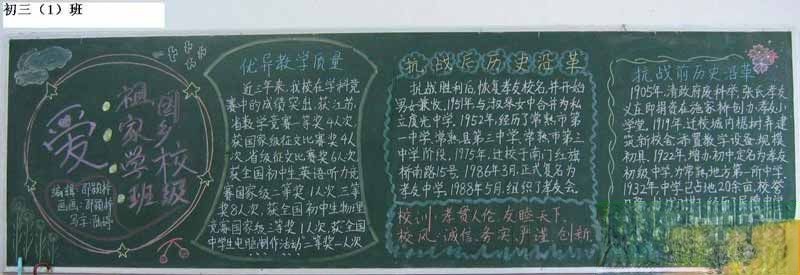 初三（1）班
爱
祖国
家乡
学校
班级
编辑：
画画：
写字：
优异教学质量
近三年来，我校在学科竞
赛中的成绩突出，获江苏
省数学竞赛一等奖4人次
获国家级征文比赛奖4人
次，省级征文比赛奖6人次
获全国初中生英语听力竞
赛国家级二等奖1人次，三等
奖8人次，获全国初中生物理
竞赛国家级三等奖1人次，获全国
中学生电脑制作活动二等奖一人次
抗战后历史沿革
抗战胜利后，恢复孝友校名，并开始
男女兼收，1951年与淑琴女中合并为私
立虞光中学，1952年，经历了常熟市第
一中学，常熟县第三中学，常熟市第三
中学阶段，1975年，迁校于南门红旗
桥南路15号，1986年3月，正式复名为
孝友中学，1988年5月，组织了孝友会。
校训：孝贤人伦 友睦天下
校风：诚信、务实、严谨、创新
抗战前历史沿革
1905年，清政府废科举，张氏孝友
义庄即捐资在施家桥创办孝友小
学堂，1919年，迁校城内椐树弄建
筑新校舍，添置教学设备，规模
初具，1922年，增办初中定名为孝友
初级中学，为常熟地方第一所中学，
1932年，中学已占地20余亩，校祭